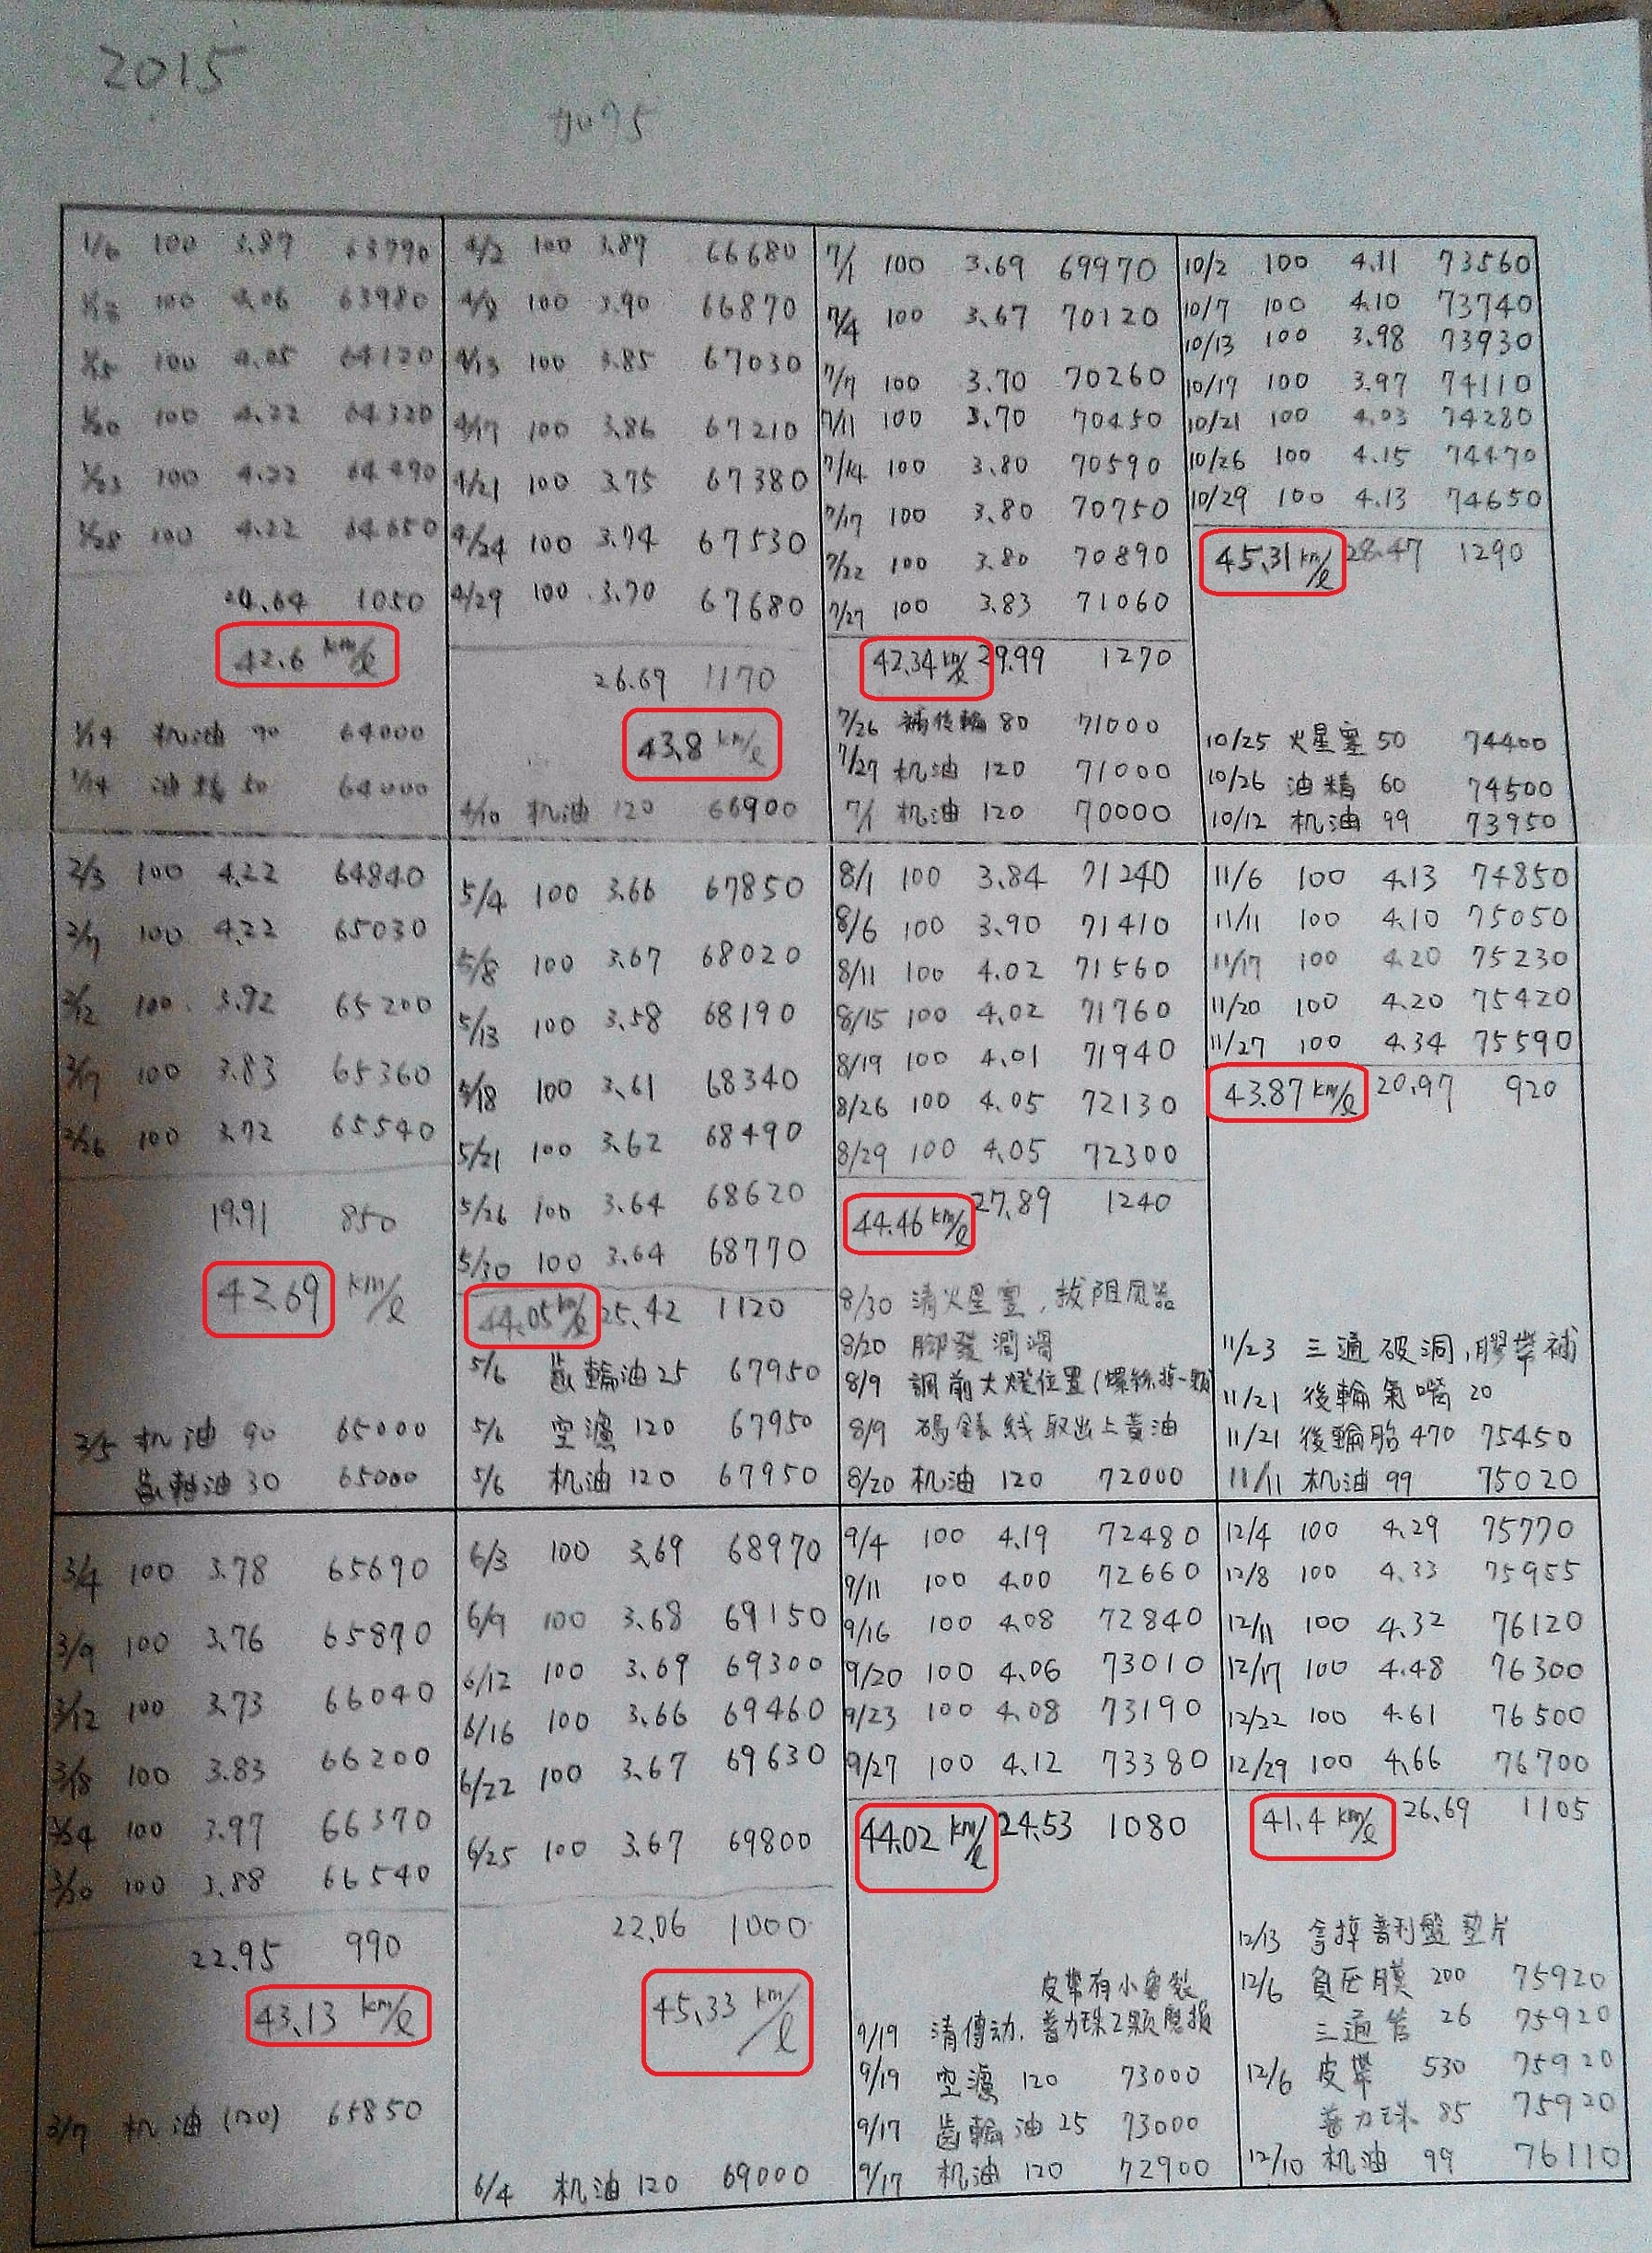 2015
加95
1/6 100 3.87 63790
100 4.06 63980
1/15 100 4.05 64120
1/20 100 4.22 64320
1/23 100 4.22 64490
1/28 100 4.22 64650
24.64 1050
42.6 km/l
1/14 机油 90 64000
1/14 油精 50 64000
2/3 100 4.22 64840
2/7 100 4.22 65030
2/12 100 3.92 65200
2/17 100 3.83 65360
2/26 100 3.72 65540
19.91 850
42.69 km/l
2/5 机油 90 65000
齒輪油 30 65000
3/4 100 3.78 65690
3/9 100 3.76 65870
3/12 100 3.73 66040
3/18 100 3.83 66200
3/24 100 3.97 66370
3/30 100 3.88 66540
22.95 990
43.13 km/l
3/7 机油 (120) 65850
4/2 100 3.89 66680
4/8 100 3.90 66870
4/13 100 3.85 67030
4/17 100 3.86 67210
4/21 100 3.75 67380
4/24 100 3.74 67530
4/29 100 3.70 67680
26.69 1170
43.8 km/l
4/10 机油 120 66900
5/4 100 3.66 67850
5/8 100 3.67 68020
5/13 100 3.58 68190
5/18 100 3.61 68340
5/21 100 3.62 68490
5/26 100 3.64 68620
5/30 100 3.64 68770
44.05 km/l 25.42 1120
5/6 齒輪油 25 67950
5/6 空濾 120 67950
5/6 机油 120 67950
6/3 100 3.69 68970
6/9 100 3.68 69150
6/12 100 3.69 69300
6/16 100 3.66 69460
6/22 100 3.67 69630
6/25 100 3.67 69800
22.06 1000
45.33 km/l
6/4 机油 120 69000
7/1 100 3.69 69970
7/4 100 3.67 70120
7/7 100 3.70 70260
7/11 100 3.70 70450
7/14 100 3.80 70590
7/17 100 3.80 70750
7/22 100 3.80 70890
7/27 100 3.83 71060
42.34 km/l 29.99 1270
7/26 補後輪 80 71000
7/27 机油 120 71000
7/1 机油 120 70000
8/1 100 3.84 71240
8/6 100 3.90 71410
8/11 100 4.02 71560
8/15 100 4.02 71760
8/19 100 4.01 71940
8/26 100 4.05 72130
8/29 100 4.05 72300
44.46 km/l 27.89 1240
8/30 清火星塞,拔阻風器
8/20 腳發潤滑
8/9 調前大燈位置(螺絲掉一顆)
8/9 碼錶线取出上黃油
8/20 机油 120 72000
9/4 100 4.19 72480
9/11 100 4.00 72660
9/16 100 4.08 72840
9/20 100 4.06 73010
9/23 100 4.08 73190
9/27 100 4.12 73380
44.02 km/l 24.53 1080
皮帶有小龜裂
9/19 清傳动,普力珠2顆磨損
9/19 空濾 120 73000
9/17 齒輪油 25 73000
9/17 机油 120 72900
10/2 100 4.11 73560
10/7 100 4.10 73740
10/13 100 3.98 73930
10/17 100 3.97 74110
10/21 100 4.03 74280
10/26 100 4.15 74470
10/29 100 4.13 74650
45.31 km/l 28.47 1290
10/25 火星塞 50 74400
10/26 油精 60 74500
10/12 机油 99 73950
11/6 100 4.13 74850
11/11 100 4.10 75050
11/17 100 4.20 75230
11/20 100 4.20 75420
11/27 100 4.34 75590
43.87 km/l 20.97 920
11/23 三通破洞,膠帶補
11/21 後輪氣嘴 20
11/21 後輪胎 470 75450
11/11 机油 99 75020
12/4 100 4.29 75770
12/8 100 4.33 75955
12/11 100 4.32 76120
12/17 100 4.48 76300
12/22 100 4.61 76500
12/29 100 4.66 76700
41.4 km/l 26.69 1105
12/13 拿掉普利盤墊片
12/6 負压膜 200 75920
三通管 26 75920
12/6 皮帶 530 75920
普力珠 85 75920
12/10 机油 99 76110